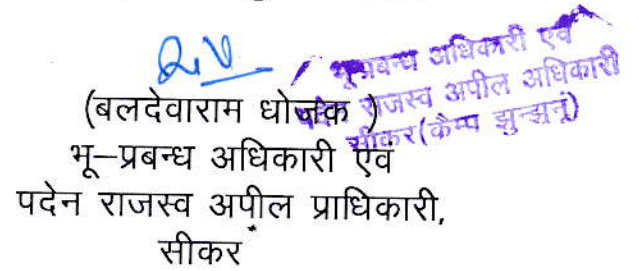 भू-प्रबन्ध अधिकारी एवं
पदेन राजस्व अपील अधिकारी
सीकर(कैम्प झुन्झनूं)
(बलदेवाराम धोजक )
भू–प्रबन्ध अधिकारी एवं
पदेन राजस्व अपील प्राधिकारी,
सीकर